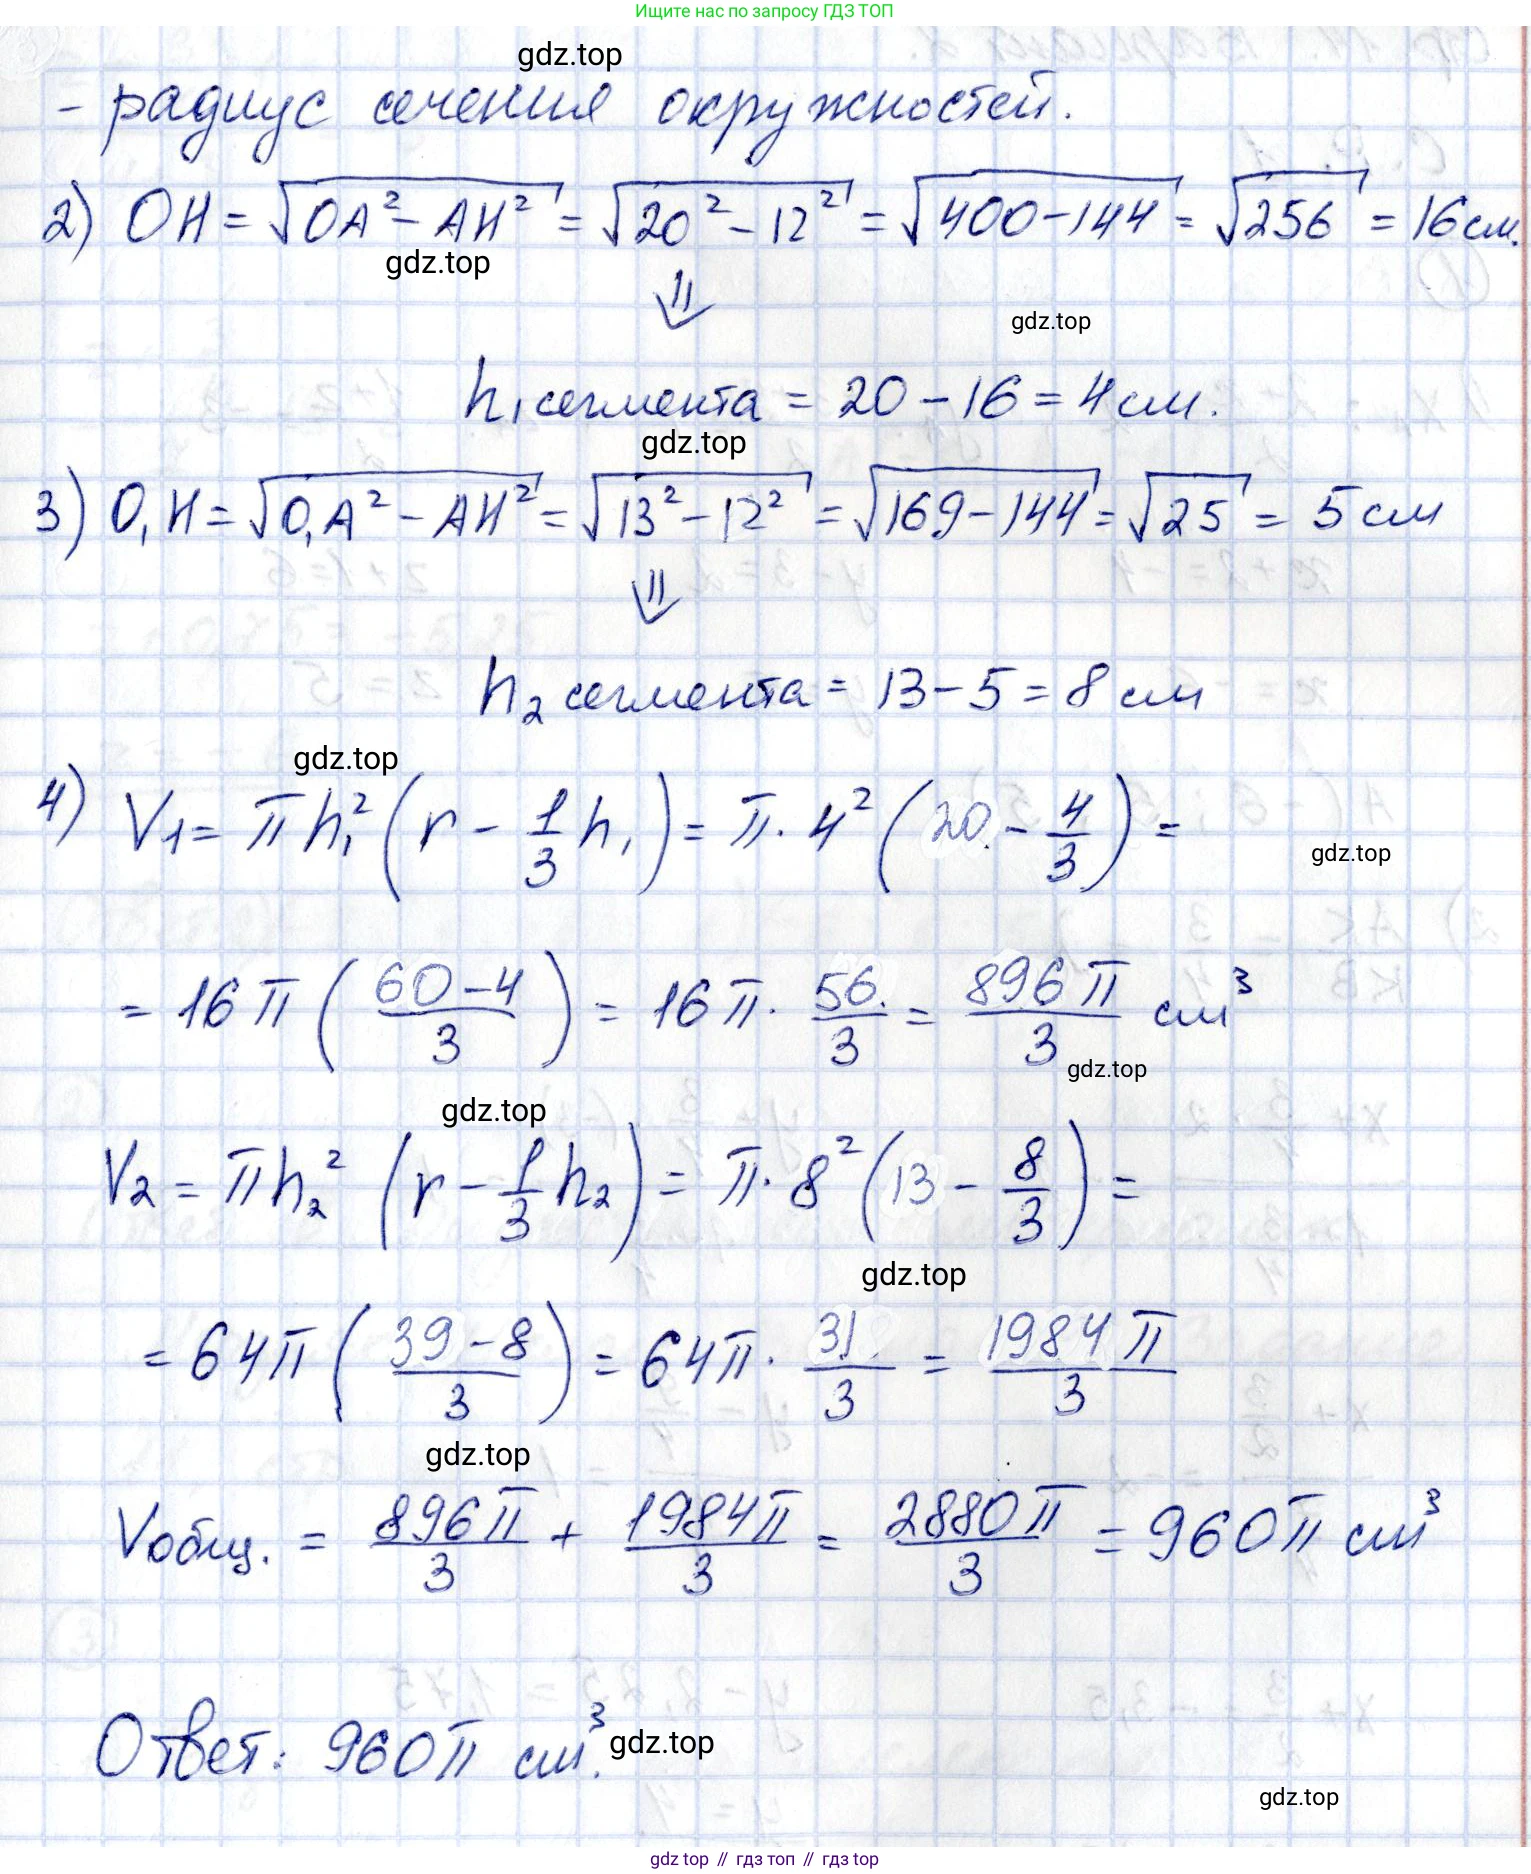 Ищите нас по запросу ГДЗ ТОП
gdz.top
- радиус сечения окружностей.
2) OH = √(OA² - AH²) = √(20² - 12²) = √(400 - 144) = √256 = 16 см.
gdz.top
⇓
gdz.top
h₁ сегмента = 20 - 16 = 4 см.
gdz.top
3) O₁H = √(O₁A² - AH²) = √(13² - 12²) = √(169 - 144) = √25 = 5 см
⇓
h₂ сегмента = 13 - 5 = 8 см
gdz.top
4) V₁ = πh₁² (r - 1/3 h₁) = π · 4² (20 - 4/3) =
gdz.top
= 16π ((60 - 4)/3) = 16π · 56/3 = 896π/3 см³
gdz.top
gdz.top
V₂ = πh₂² (r - 1/3 h₂) = π · 8² (13 - 8/3) =
gdz.top
= 64π ((39 - 8)/3) = 64π · 31/3 = 1984π/3
gdz.top
Vобщ. = 896π/3 + 1984π/3 = 2880π/3 = 960π см³
Ответ: 960π см³.
gdz.top
gdz.top
gdz.top // гдз топ // гдз top